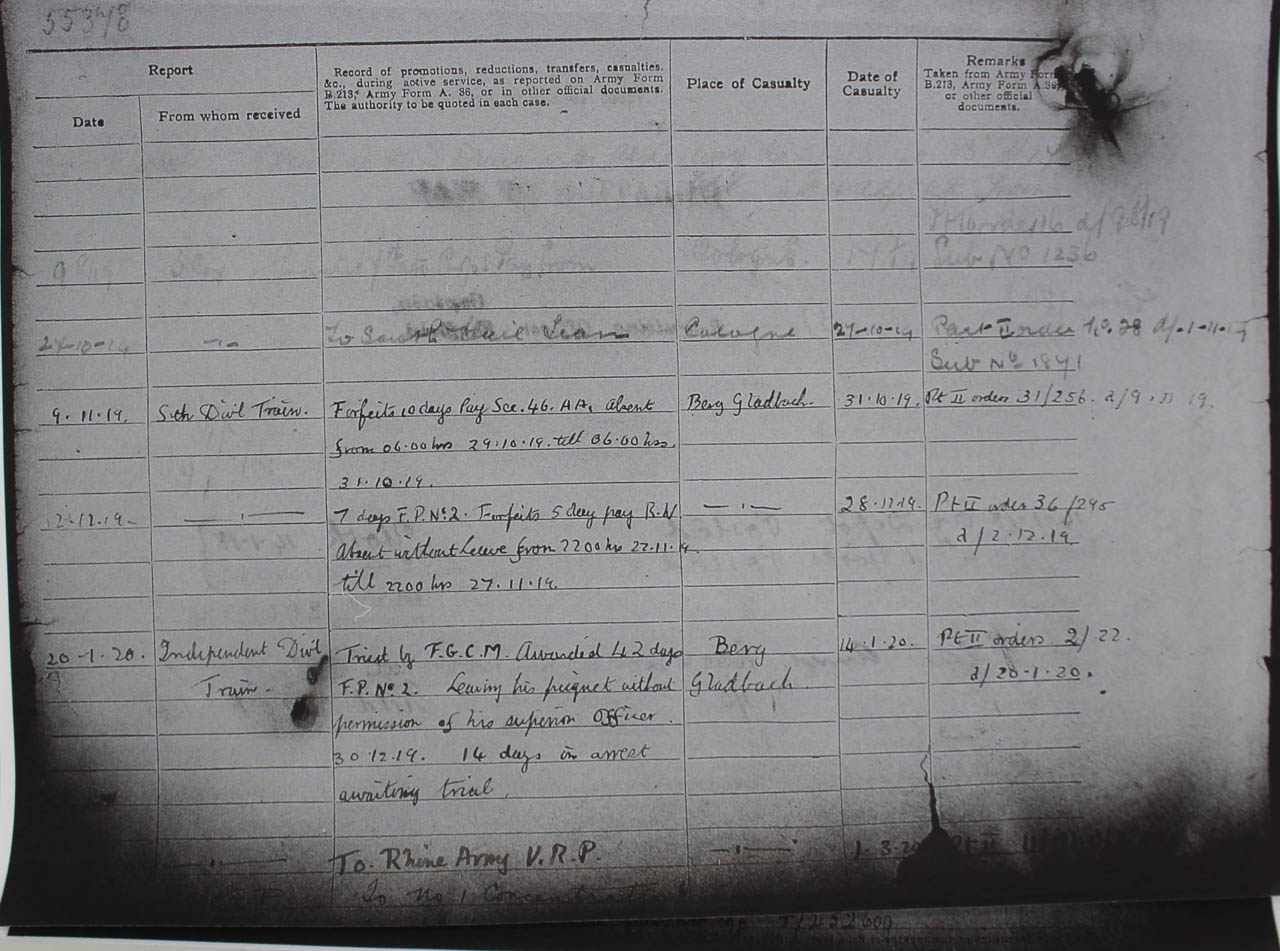 55378
Report
Date
From whom received
Record of promotions, reductions, transfers, casualties,
&c., during active service, as reported on Army Form
B.213, Army Form A. 36, or in other official documents.
The authority to be quoted in each case.
Place of Casualty
Date of
Casualty
Remarks
Taken from Army Form
B.213, Army Form A.36,
or other official
documents.
d/9 8/19
9 8/19 Cologne. Sub No 1236
27-10-19 — " — To Cologne 27-10-19 Part II order No. 28 d/-1-11-19
Sub No 1871
9.11.19. Sth Divl Train. Forfeits 10 days Pay Sec. 46. AA. absent Berg Gladbach. 31.10.19. Pt II orders 31/256. d/9.11.19.
from 06.00 hrs 29.10.19. till 06.00 hrs
31.10.19.
12.12.19. — " — 7 days F.P. No 2. Forfeits 5 day pay R.W — " — 28.11.19. Pt II order 36/295
Absent without Leave from 2200 hrs 22.11.19. d/2.12.19
till 2200 hrs 27.11.19.
20-1.20. Independent Divl Tried by F.G.C.M. Awarded 42 days Berg 14.1.20. Pt II orders 2/22.
Train. F.P. No 2. Leaving his picquet without Gladbach. d/20-1.20.
permission of his superior Officer.
30.12.19. 14 days in arrest
awaiting trial.
— " — To Rhine Army V.R.P. — " — 1.3.20 Pt II
To No 1 Concentration